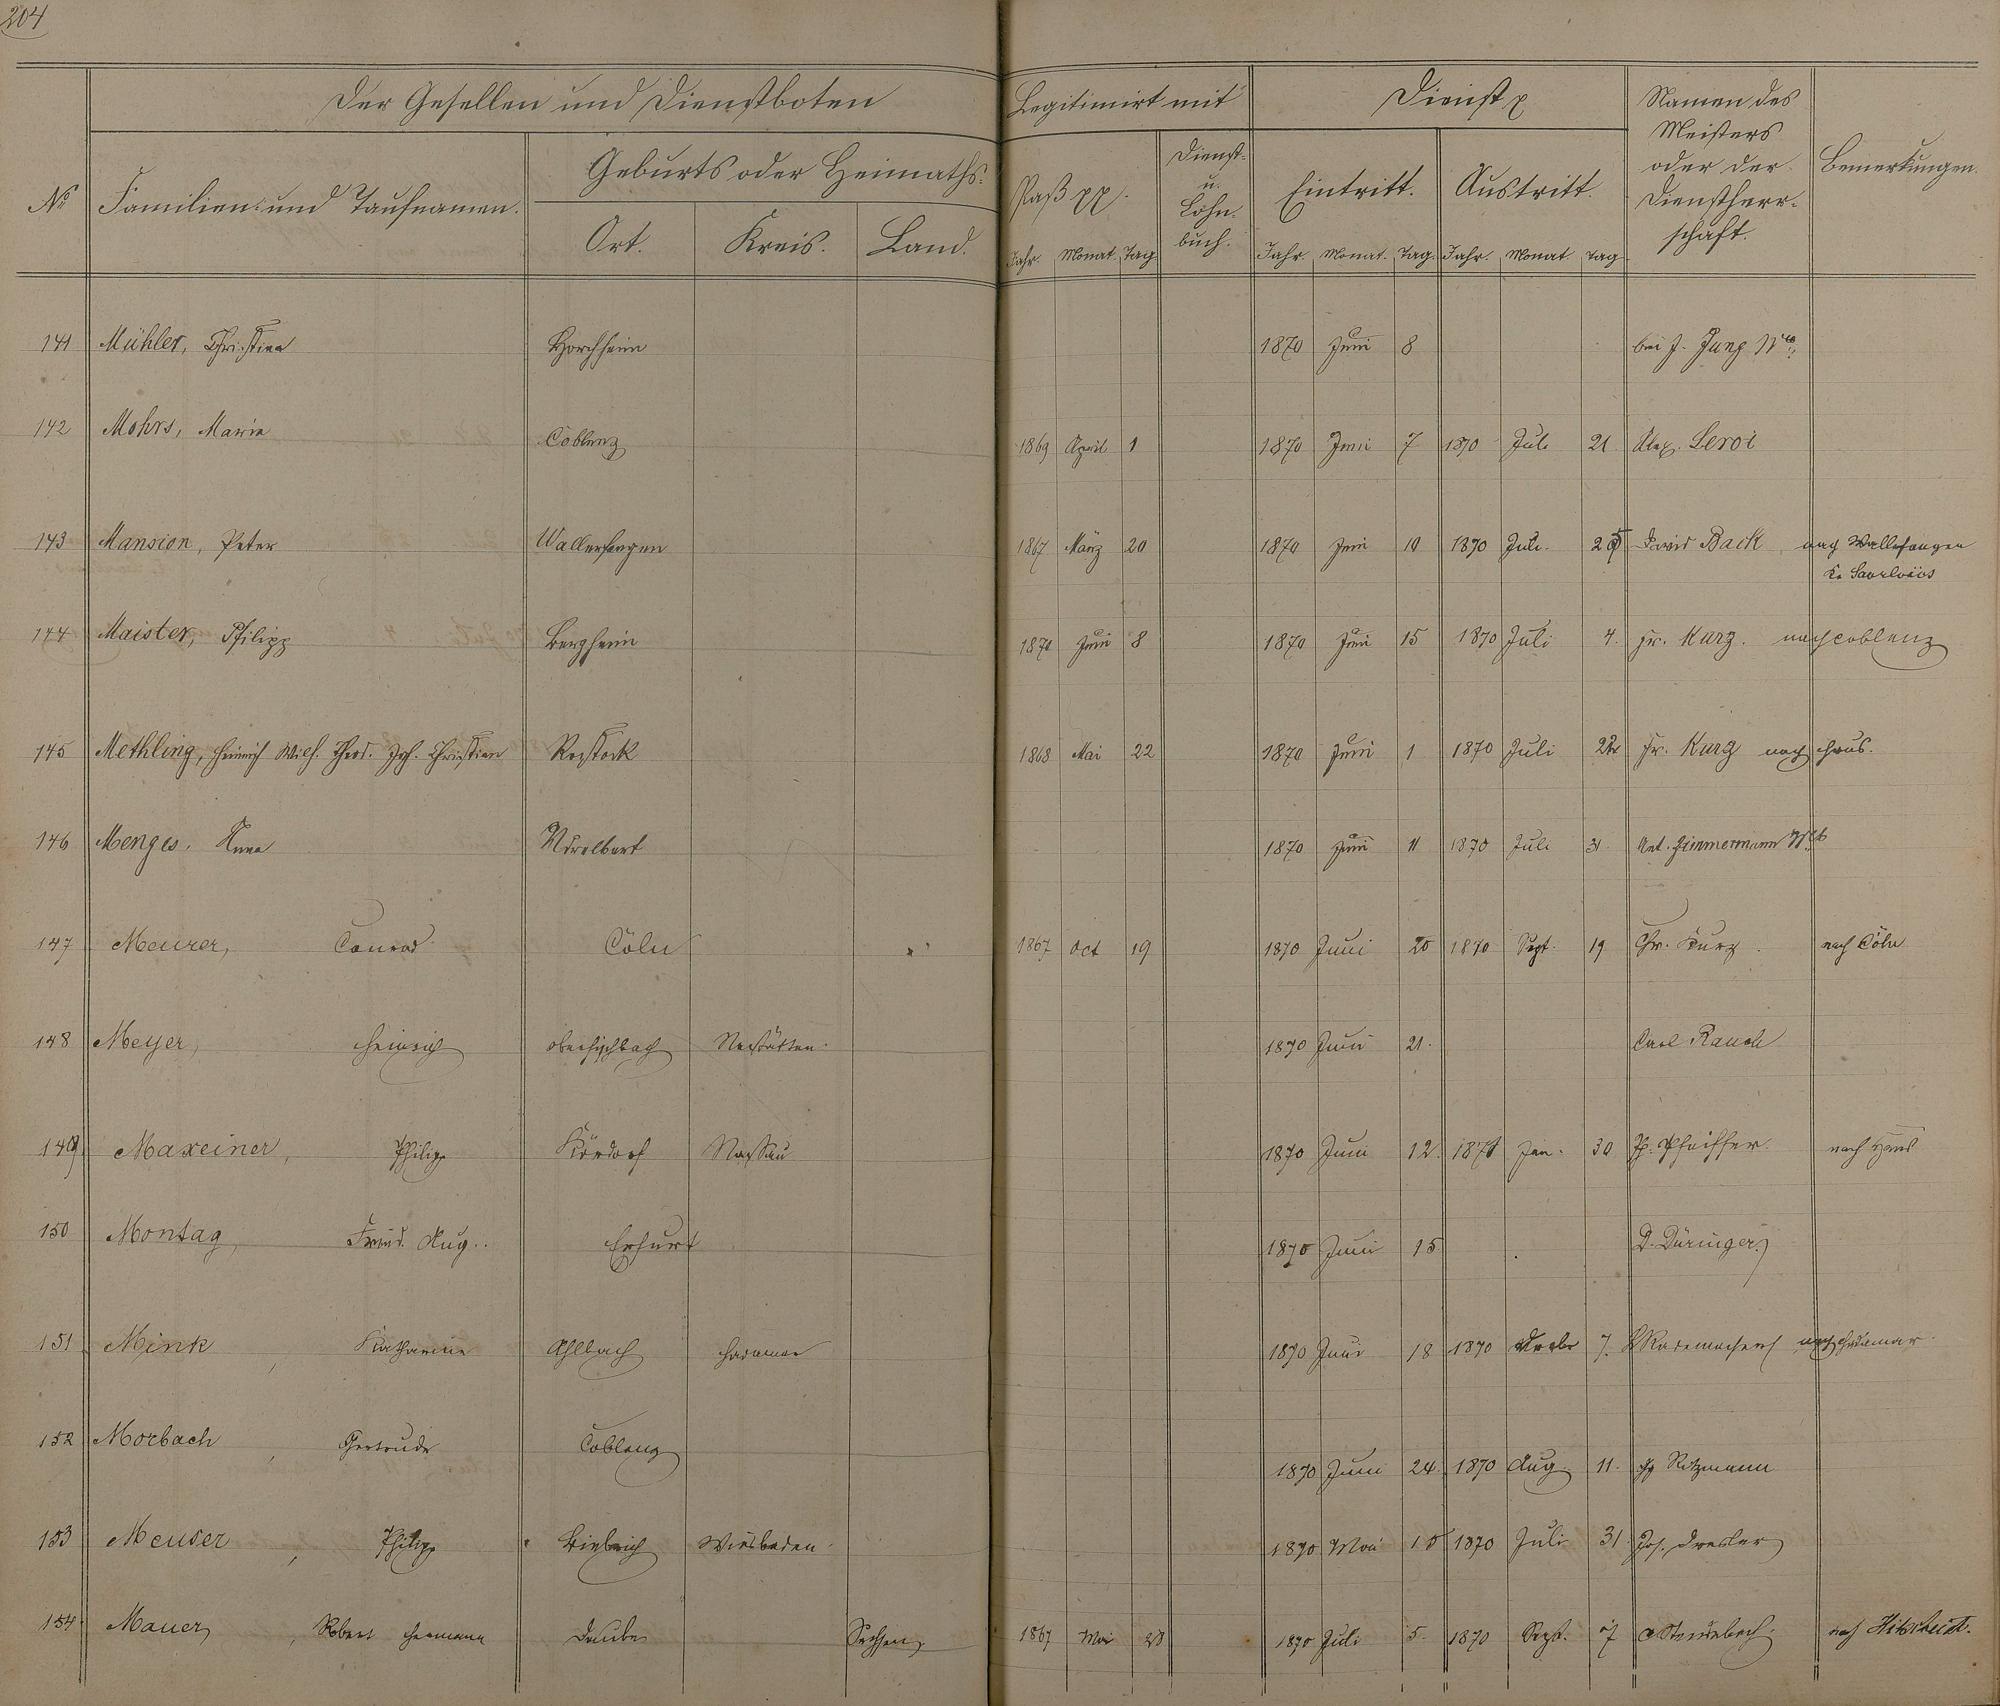 204
Der Gesellen und Dienstboten Legitimirt mit Dienst Namen des Meisters oder der Dienstherrschaft. Bemerkungen.
No Familien- und Taufnamen. Geburts oder Heimaths- Paß pp. Dienst- u. Lohn-buch. Eintritt. Austritt.
Ort. Kreis. Land. Jahr. Monat. Tag Jahr. Monat. Tag. Jahr. Monat Tag
141 Mühler, Christina Horchheim 1870 Juni 8 bei J. Jung Wwe
142 Mohrs, Maria Coblenz 1869 April 1 1870 Juni 7 1870 Juli 21 Alex. Leroi
143 Mansion, Peter Wallerfangen 1867 März 20 1870 Juni 10 1870 Juli 25 David Back nach Wallerfangen
Kr. Saarlouis
144 Maister, Philipp Bergheim 1870 Juni 8 1870 Juni 15 1870 Juli 4. Fr. Kurz. nach Coblenz
145 Methling, Heinrich Wilh. Theod. Joh. Christian Rostock 1868 Mai 22 1870 Juni 1 1870 Juli 22 Fr. Kurz nach Haus.
146 Menges, Anna 1870 Juni 11 1870 Juli 31 Ant. Zimmermann Wwe
147 Meurer, Conrad Cöln 1867 Oct 19 1870 Juni 20 1870 Sept. 19 Chr. Kurz. nach Cöln
148 Meyer, Heinrich Oberfischbach Nastätten 1870 Juni 21. Carl Rauch
149 Maxeiner, Philipp Kördorf Nassau 1870 Juni 12. 1871 Jan. 30 Ph. Pfeiffer. nach Haus
150 Montag, Fried. Aug. Erfurt 1870 Juni 15 D. Düringer
151 Mink, Katharina Ahlbach Hadamar 1870 Juni 18 1870 7. Rademacher nach Hadamar
152 Morbach, Gertrude Coblenz 1870 Juni 24. 1870 Aug. 11. Rotzmann
153 Meuser, Philipp Biebrich Wiesbaden 1870 Mai 15 1870 Juli 31 Jos. Dresler
154 Mauer, Robert Hermann Daube Sachsen 1867 Mai 28 1870 Juli 5. 1870 Sept. 7 nach